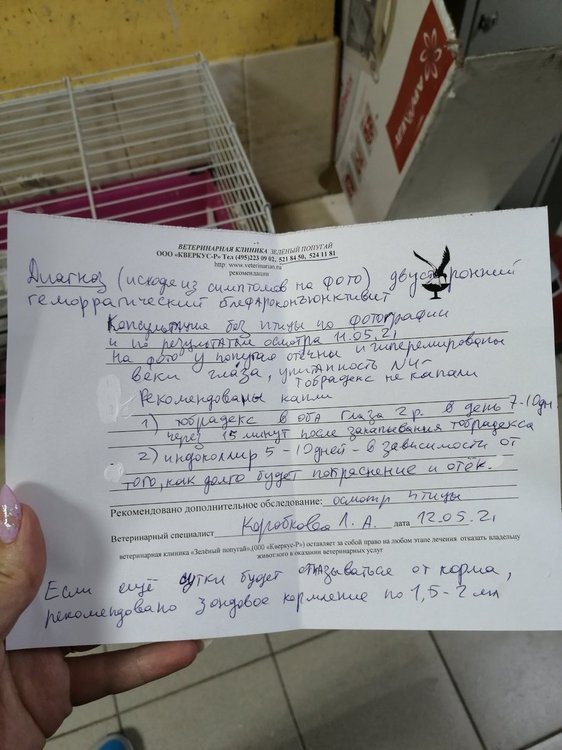 ВЕТЕРИНАРНАЯ КЛИНИКА ЗЕЛЁНЫЙ ПОПУГАЙ
ООО «КВЕРКУС-Р» Тел (495)223 09 02, 521 84 50, 524 11 81
http: www.veterinarian.ru
рекомендации
Диагноз (исходя из симптомов на фото) двусторонний
геморрагический блефароконъюнктивит
Консультация без птицы по фотографии
и по результатам осмотра 11.05.21
На фото у попугая отечны и гиперемированы
веки глаза, упитанность N4-
тобрадекс не капали
Рекомендованы капли
1) тобрадекс в оба глаза 2 р. в день 7-10дн
через 15 минут после закапывания тобрадекса
2) индоколлир 5-10дней - в зависимости от
того, как долго будет покраснение и отёк.
Рекомендовано дополнительное обследование: осмотр птицы
Ветеринарный специалист Коробкова Л. А. дата 12.05.21
ветеринарная клиника «Зелёный попугай»,(ООО «Кверкус-Р») оставляет за собой право на любом этапе лечения отказать владельцу
животного в оказании ветеринарных услуг
Если ещё сутки будет отказываться от корма,
рекомендовано зондовое кормление по 1,5-2 мл